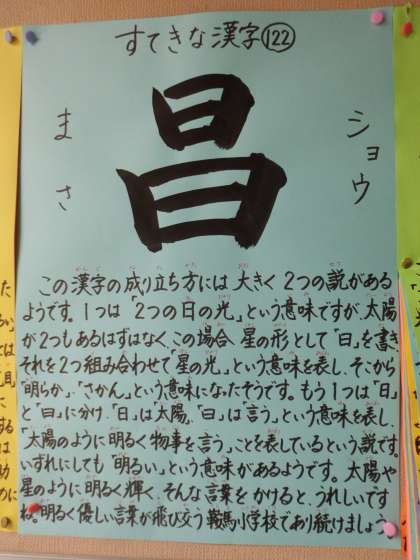 すてきな漢字122
昌
ショウ
まさ
この漢字の成り立ち方には大きく2つの説がある
ようです。1つは「2つの日の光」という意味ですが、太陽
が2つもあるはずはなく、この場合 星の形として「日」を書き
それを2つ組み合わせて「星の光」という意味を表し、そこから
「明らか」、「さかん」という意味になったそうです。もう1つは「日」
と「曰」に分け、「日」は太陽、「曰」は「言う」という意味を表し、
「太陽のように明るく物事を言う」ことを表しているという説です。
いずれにしても「明るい」という意味があるようです。太陽や
星のように明るく輝く、そんな言葉をかけると、うれしいです
ね。明るく優しい言葉が飛び交う鞍馬小学校であり続けましょう